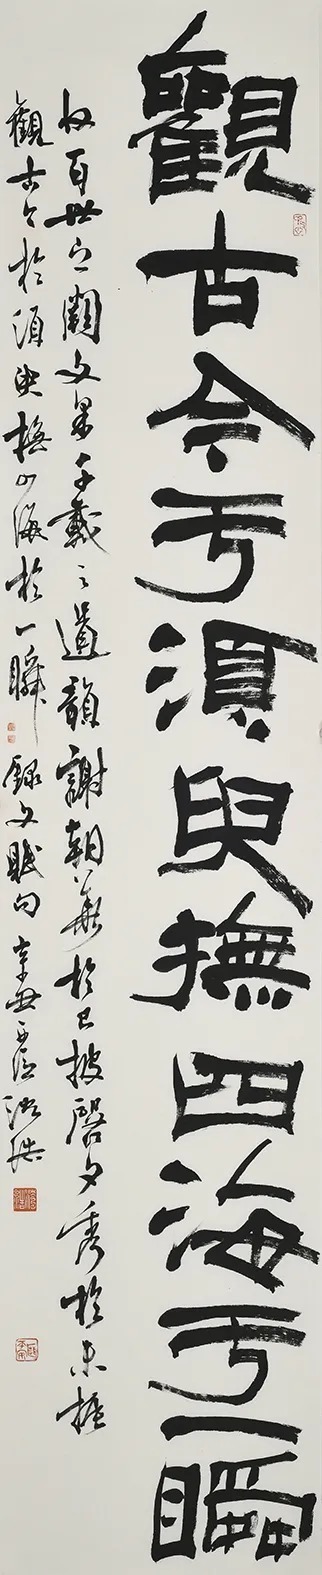 觀古今于須臾撫四海于一瞬
收百世之闕文采千載之遺韻謝朝華於已披啓夕秀於未振
觀古今於須臾撫四海於一瞬 錄文賦句 辛丑